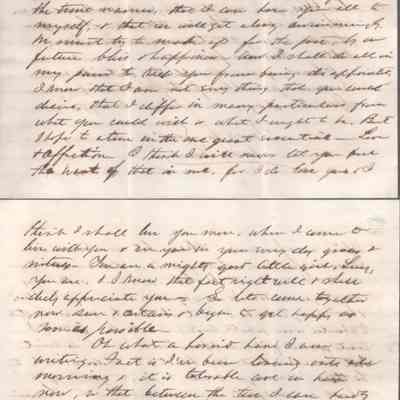 the true manner, that I can have you all to
myself, & that we will get along swimmingly.
We must try to make up for the past, by our
future bliss & happiness, and I shall do all in
my power to keep you from being
I know that I am not every thing that you could
desire, that I differ in many particulars from
what you could wish or what I ought to be. But
I hope to atone in the one great essential – Love
& affection. I think I will never let you feel
the want of that in me, for I do love you & I
think I shall love you more, when I come to
live with you & see you in your every day
You are a mighty good little girl,
you are, & I know that fact right well & shall
duly appreciate you – So let's come together
now sure & certain & begin to get happy as
soon as possible –
Of what a horrid hand I am
writing. Fact is I've been
morning & it is tolerable cool in here
now, so that between the two I can hardly